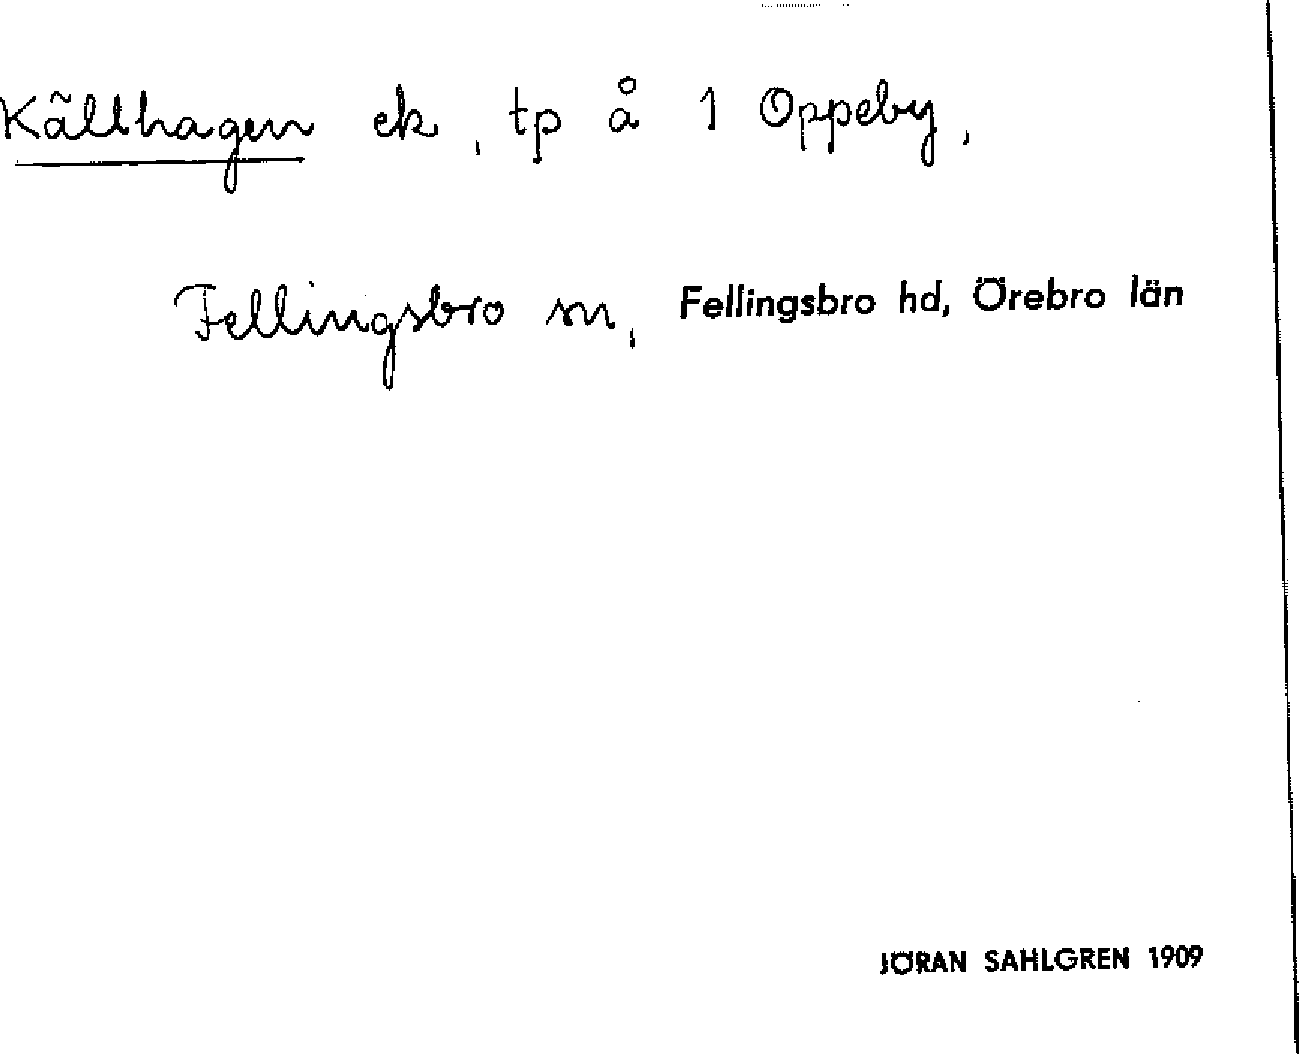 Källhagen ek, tp å 1 Oppeby,
Fellingsbro sn, Fellingsbro hd, Örebro län
JÖRAN SAHLGREN 1909